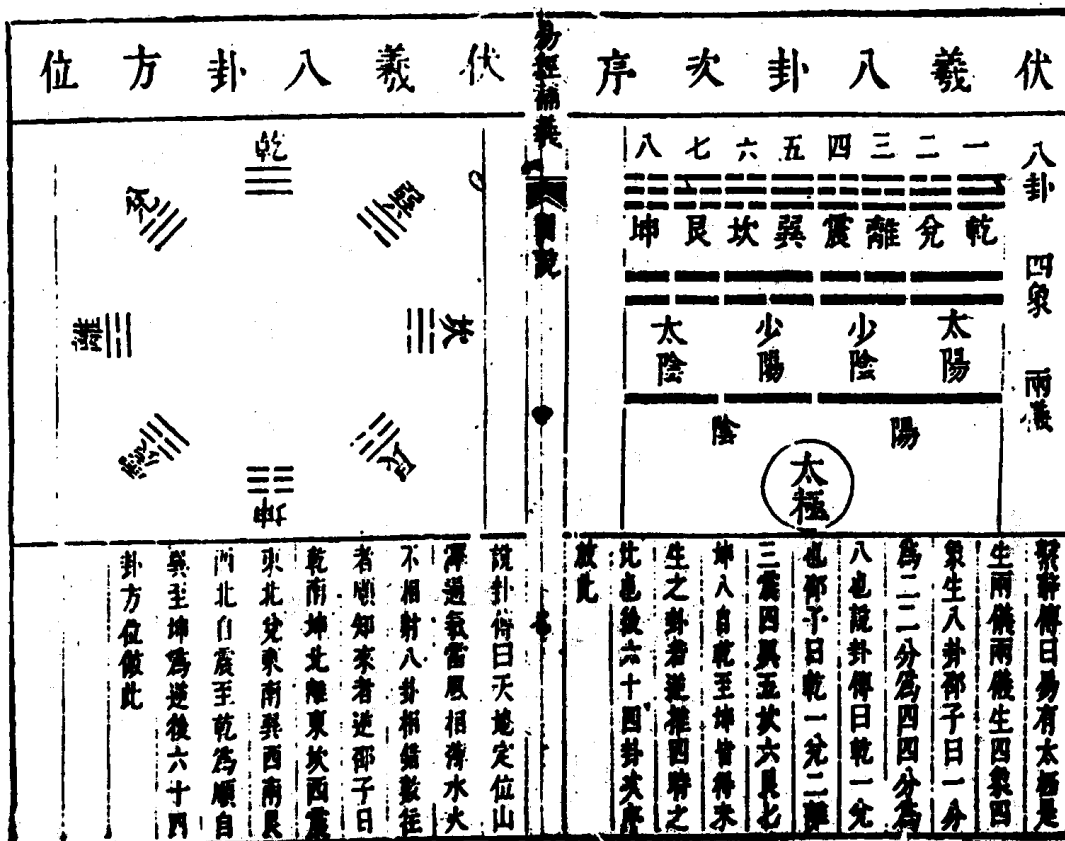 伏羲八卦次序
八卦 四象 兩儀
一 二 三 四 五 六 七 八
乾 兌 離 震 巽 坎 艮 坤
太陽 少陰 少陽 太陰
陽 陰
太極
繫辭傳曰易有太極是
生兩儀兩儀生四象四
象生八卦邵子曰一分
為二二分為四四分為
八也說卦傳曰乾一兌
也邵子曰乾一兌二離
三震四巽五坎六艮七
坤八自乾至坤皆得未
生之卦若逆推四時之
比也後六十四卦次序
放此
易經補義
圖說
伏羲八卦方位
乾
巽
坎
艮
坤
震
離
兌
說卦傳曰天地定位山
澤通氣雷風相薄水火
不相射八卦相錯數往
者順知來者逆邵子曰
乾南坤北離東坎西震
東北兌東南巽西南艮
西北自震至乾為順自
巽至坤為逆後六十四
卦方位倣此